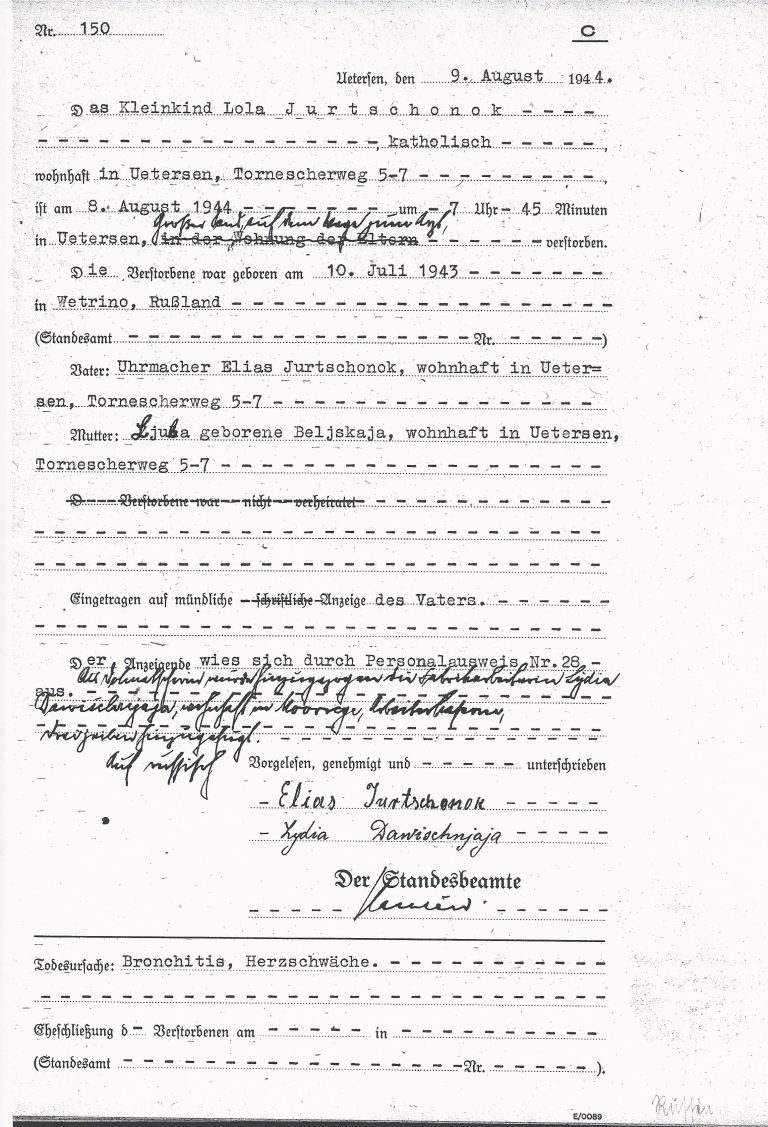 Nr. 150 C
Uetersen, den 9. August 1944.
Das Kleinkind Lola Jurtschonok - - - -
- - - - - - - - - - - - - - - - - , katholisch - - - - - ,
wohnhaft in Uetersen, Tornescherweg 5-7 - - - - - - - - - ,
ist am 8. August 1944 - - - - - - - um - 7 Uhr - 45 Minuten
Großer Sand, auf dem Wege zum Arzt,
in Uetersen, in der Wohnung der Eltern - - - - - - verstorben.
Die Verstorbene war geboren am 10. Juli 1943 - - - - - - -
in Wetrino, Rußland - - - - - - - - - - - - - - - - - -
(Standesamt - - - - - - - - - - - - - - - - - Nr. - - - - - -)
Vater: Uhrmacher Elias Jurtschonok, wohnhaft in Ueter=
sen, Tornescherweg 5-7 - - - - - - - - - - - - - - -
Mutter: Ljuba geborene Beljskaja, wohnhaft in Uetersen,
Tornescherweg 5-7 - - - - - - - - - - - - - - - - - -
D - - - Verstorbene war - - nicht - - verheiratet - - - - - - - - - - - -
- - - - - - - - - - - - - - - - - - - - - - - - - - -
- - - - - - - - - - - - - - - - - - - - - - - - - - -
Eingetragen auf mündliche - schriftliche - Anzeige des Vaters. - - - - - -
- - - - - - - - - - - - - - - - - - - - - - - - - - -
Der Anzeigende wies sich durch Personalausweis Nr.28 -
Als Dolmetscherin wurde hinzugezogen die Fabrikarbeiterin Lydia
aus. - - - - - - - - - - - - - - - - - - - - - - - -
Dawischnjaja, wohnhaft in Moorrege,
Drei Zeilen hinzugefügt.
Auf russisch
Vorgelesen, genehmigt und - - - - - unterschrieben
- Elias Jurtschonok - - - - -
- Lydia Dawischnjaja - - - - -
Der Standesbeamte
Todesursache: Bronchitis, Herzschwäche. - - - - - - - - - - - -
- - - - - - - - - - - - - - - - - - - - - - - - - - -
Eheschließung d - Verstorbenen am - - - - - in - - - - - - - - - -
(Standesamt - - - - - - - - - - - - - - - - - Nr. - - - - - - ).
E/0089
Russin